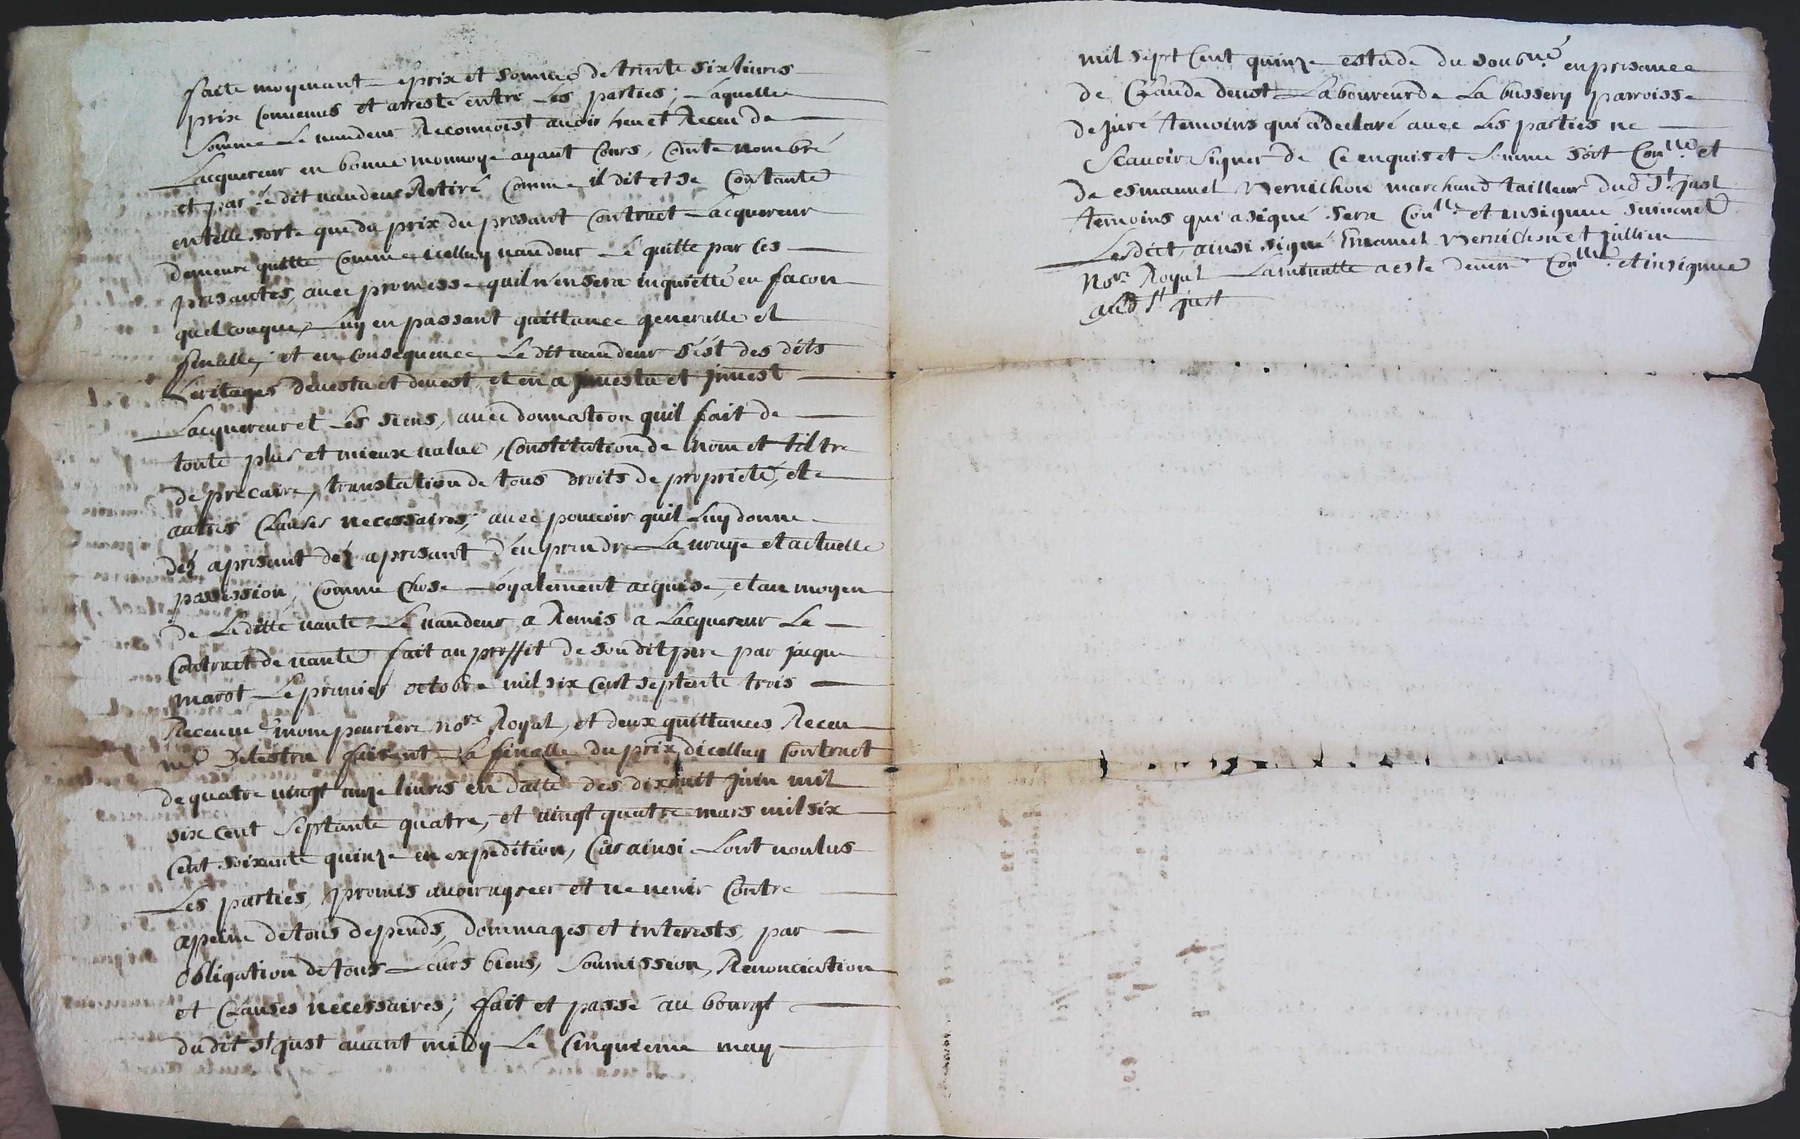 faite moyenant le prix et somme de trente six livres
prix convenus et arresté entre les parties; laquelle
somme le vandeur reconnoist avoir heu et receu de
lacquereur en bonne monnoye ayant cours, conte nombré
et par le dit vandeur retiré comme il dit et se contante
en telle sorte que du prix du presant contract lacquereur
demeure quitte comme icelluy vandeur le quitte par ces
presantes, avec promesse quil nen sera inquietté en facon
quelconque, luy en passant quittance generalle et
finalle, et en consequence le dit vandeur sest des dits
heritages devestu et devest, et en a jnvestu et jnvest
lacquereur et les siens, avec donnation quil fait de
toute plus et mieux value, constitution de nom et tiltre
de precaire, translation de tous droits de proprieté, et
autres clauses necessaires, avec pouvoir quil luy donne
déz apresant déz apresant d'en prendre la vraye et actuelle
possession, comme chose loyalement acquise, et au moyen
de laditte vante le vandeur a remis a lacquereur le
contract de vante fait au proffit de son dit pere par jacque
marot le premier octobre mil six cent septente trois
receue mompeuriere nore Royal, et deux quittances receu
me Delestra faisant la finalle du prix dicelluy contract
de quatre vingt unze livres en datte des dixhuit juin mil
six cent septante quatre, et vingt quatre mars mil six
cent soixante quinze en expedition, car ainsi lont voulus
les parties, promis avoir agreer et ne venir contre
apeine de tous depends, dommages et interests, par
obligation de tous leurs biens, soumission, renonciation
et clauses necessaires; fait et passé au bourgt
dudit st just avant midy le cinquieme may
mil sept cent quinze estude du soubné en presance
de Claude denst laboureur de la bussery parroisse
de juré temoins qui a declaré avec les parties ne
scavoir signer de ce enquis et somme sort Conlle et
de esmanuel Vernichon marchand tailleur dud st just
temoins qui a signé sera Conlle et insignue suivant
Ledict, ainsi signé Emanuel Vernichon et jullien
nore Royal La minutte a este denm Conllée et insignue
aud st just